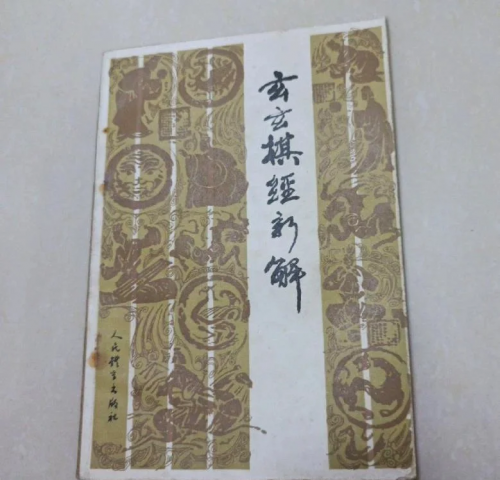 玄玄棋經新解
人民體育出版社